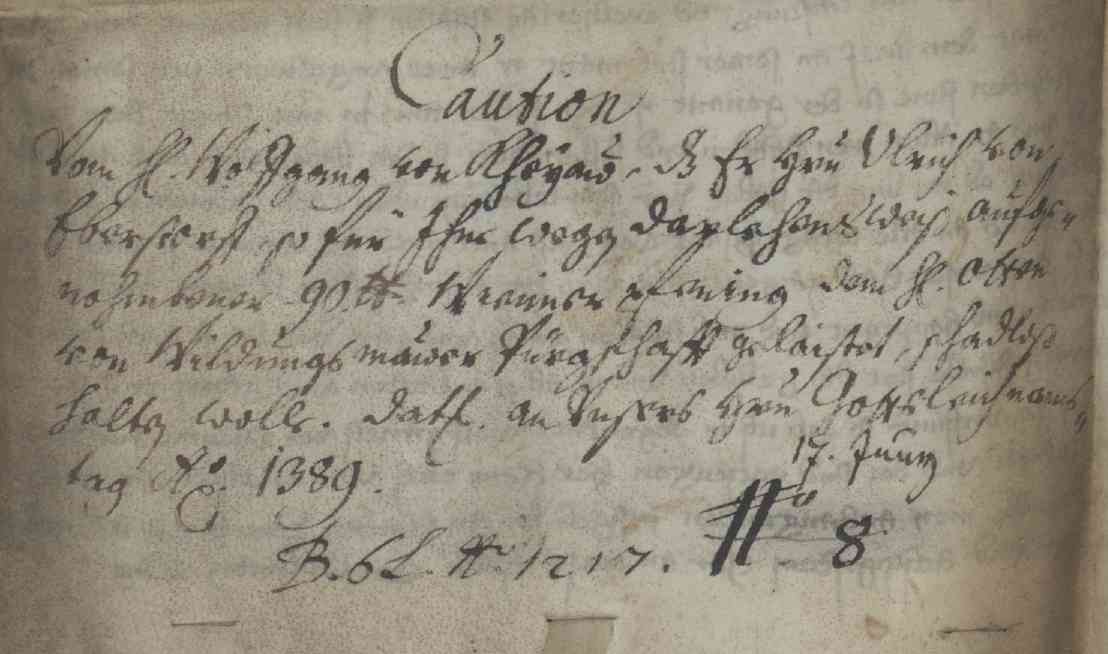 Caution
Vom H. Wolfgang von Khöyaŭ, dz Er Hrn Ulrich von
Eberstorf, so für Ihne wegen Darlehensweiß aufge„
nohmbener 90 lb Wienner pfening dem H. Otten
von Wildungsmaŭer Pŭrgschafft gelaistet, schadloß
halten wolle. Datt. an Unsers Hrn Gottsleichnambs„
tag Ao. 1389.
17. Junij
No 8
B. 6 L. No. 1217.